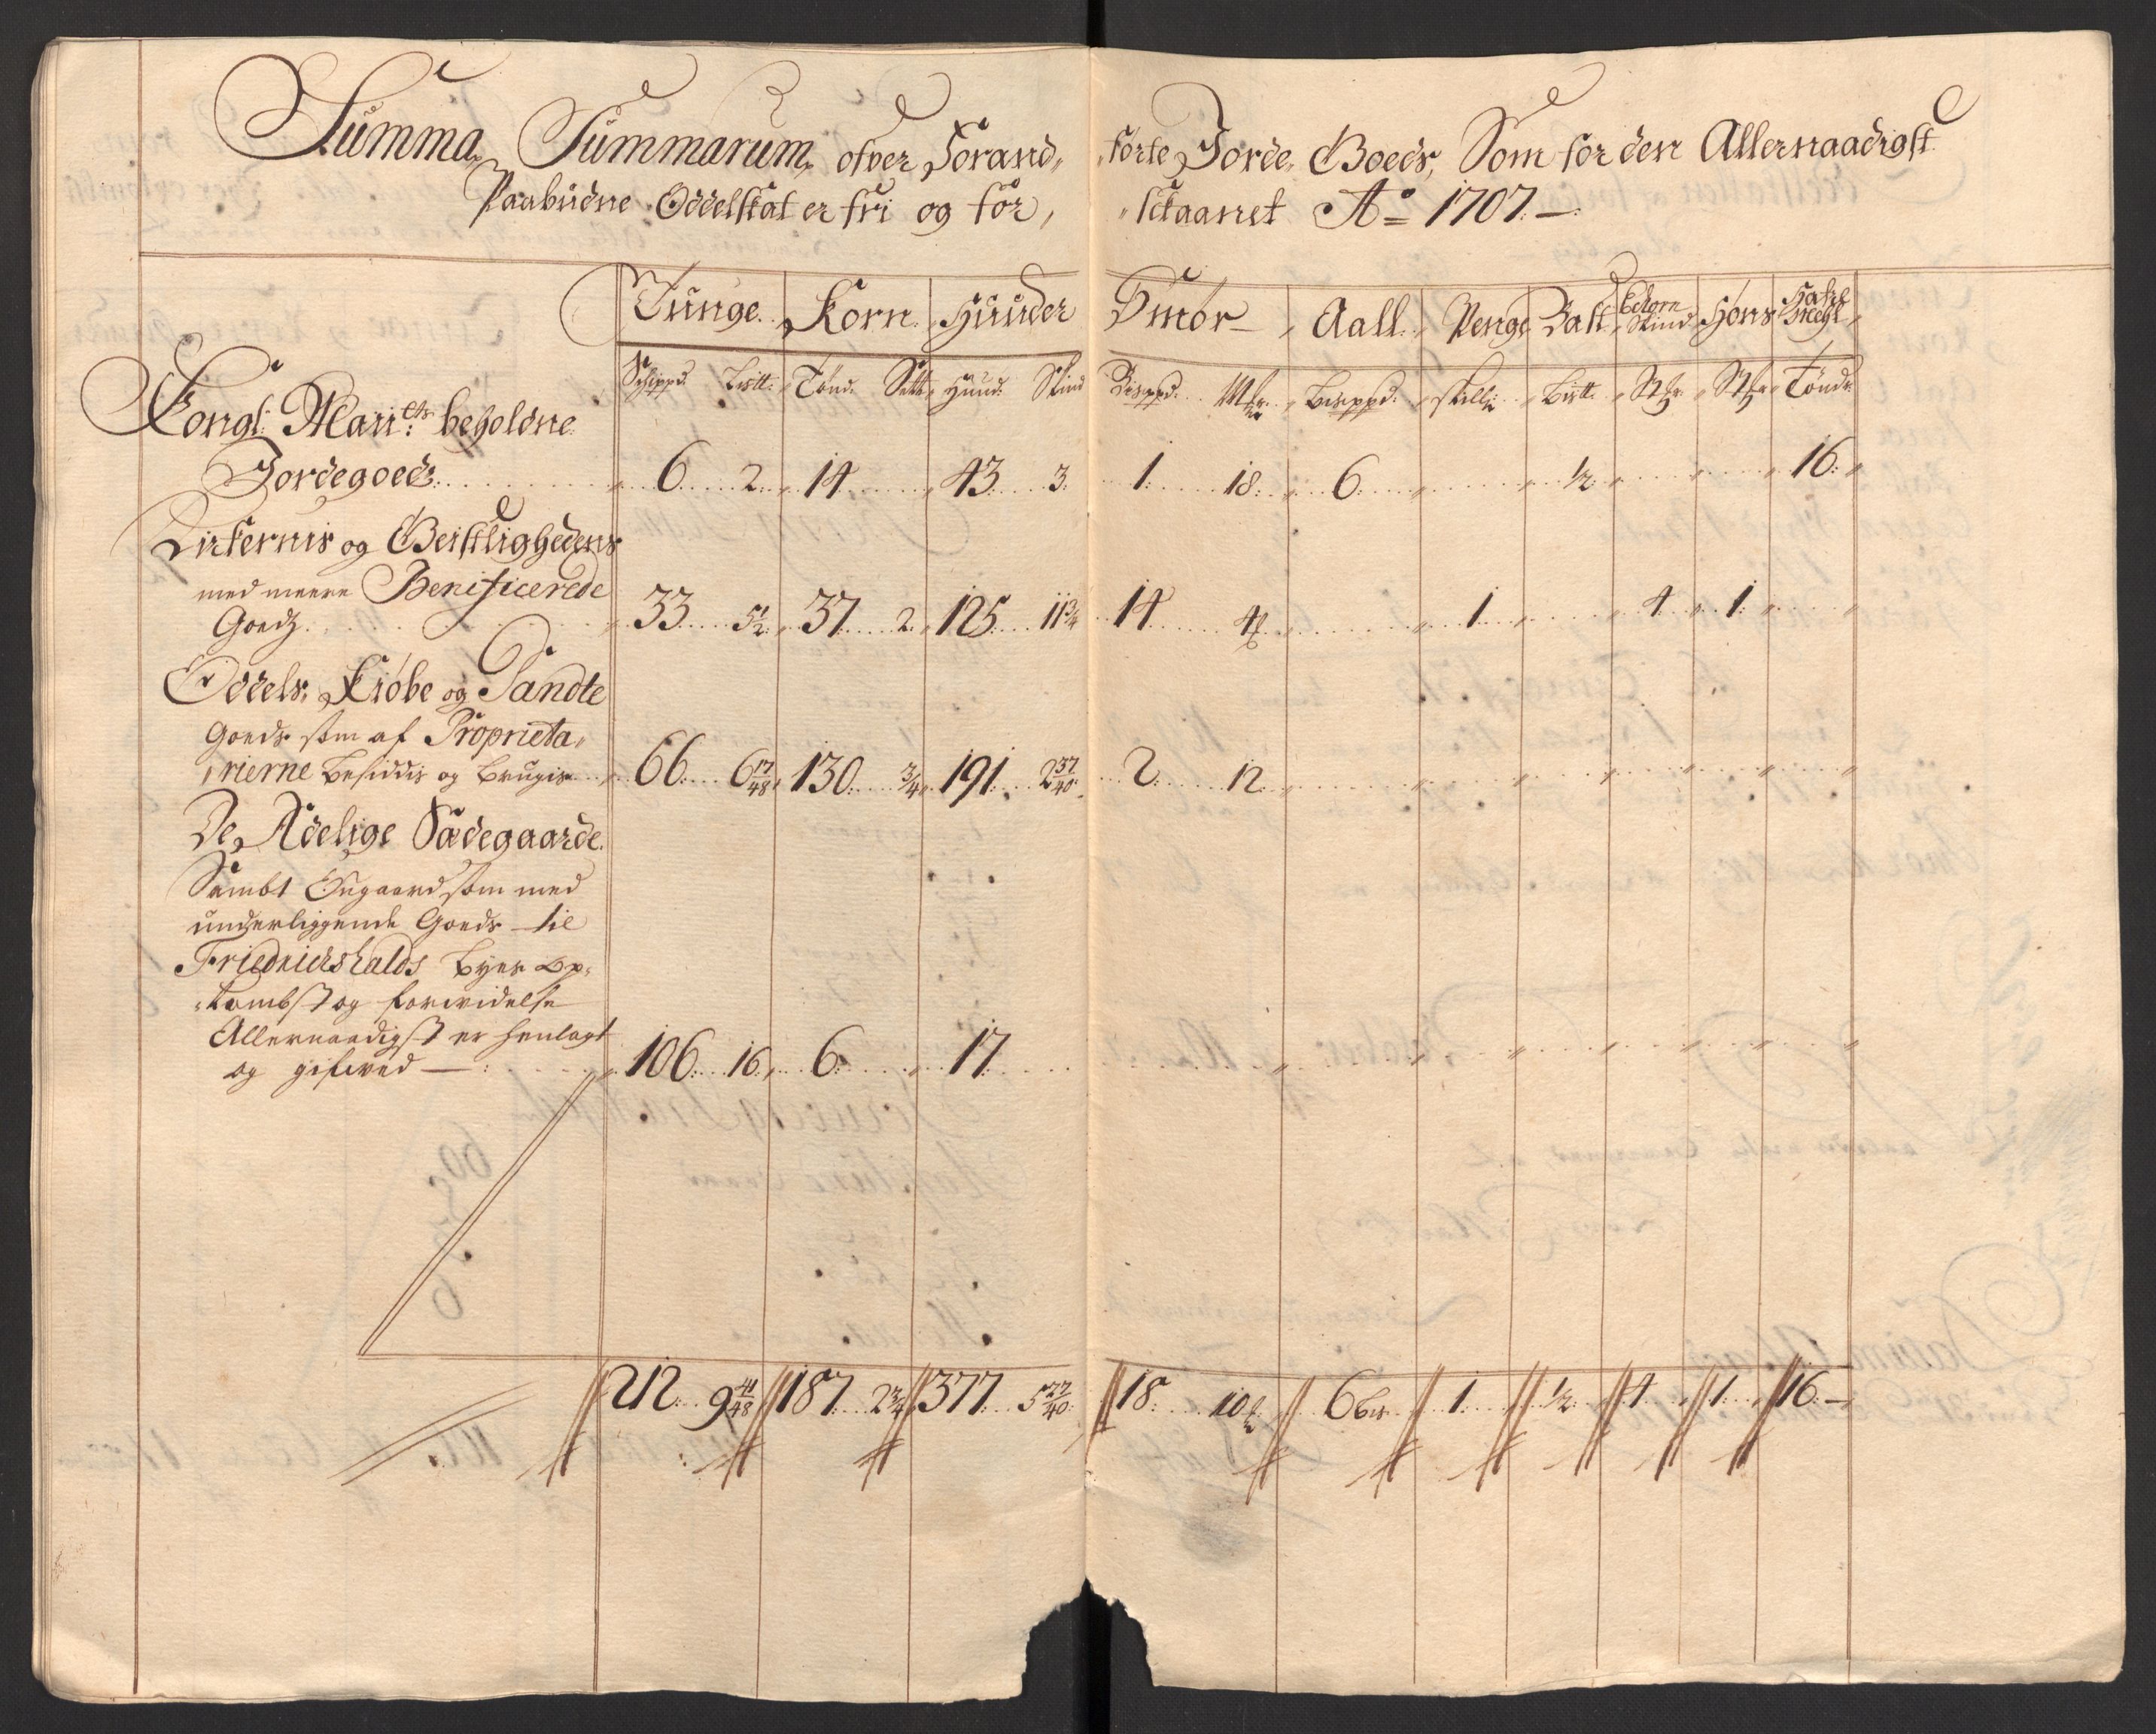 Summa Summarum, ofver Forand„ „førte Jorde Boeds, Som for den Allernaadigst
Paabudne Oddelskat er fri og for, „skaanet Aº 1707.—
Tunge. Korn. Huuder Smør Aall. Penge Salt Echorn Skind Høns Hafre Mehl
Schippd. Lisll: Tønd. Sett. Huud. Skind Bisppd. Mkr Bisppd. skill: Bisll. Stkr Stkr Tønder
Kongl: Maii: ets beholdne
Jordegoeds 6 2 14 43 3. 1 18. 6 ½ 16.
Kirkernis og Geistlighedens
med meere Benificerede
Goedz 33 5½ 37 2 125 11¾ 14 4 1 4 1
Oddels, Kiøbe og Pandte
Goeds som af Proprieta„
„rierne Besiddis og Brugis 66. 6 17/48 130 ¾ 191. 2 37/40 2. 12
De Adelige Sædegaarde.
Sambt som med
underliggende Goeds til
Friedrichshalds Byes Op„
„kombst og forvidelse
Allernaadigst er henlagt
og gifved — 106 16 6 17
212. 9 41/48 187 2¾ 377 5 27/40 18. 10 6 1 ½ 4 1 16.—